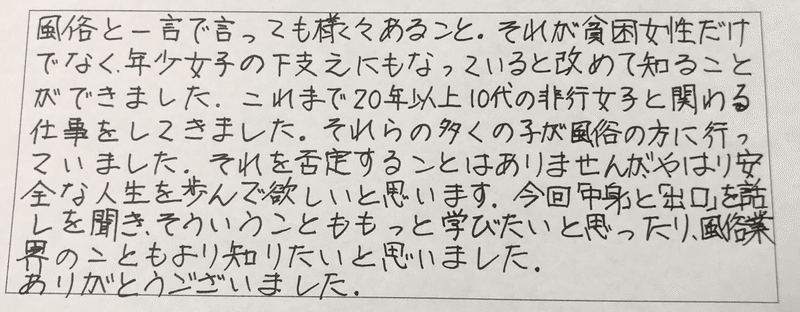 風俗と一言で言っても様々あること。それが貧困女性だけ
でなく、年少女子の下支えにもなっていると改めて知ること
ができました。これまで20年以上10代の非行女子と関わる
仕事をしてきました。それらの多くの子が風俗の方に行っ
ていました。それを否定することはありませんがやはり安
全な人生を歩んで欲しいと思います。今回「中身」と「出口」を話
しを聞き、そういうことももっと学びたいと思ったり、風俗業
界のこともより知りたいと思いました。
ありがとうございました。